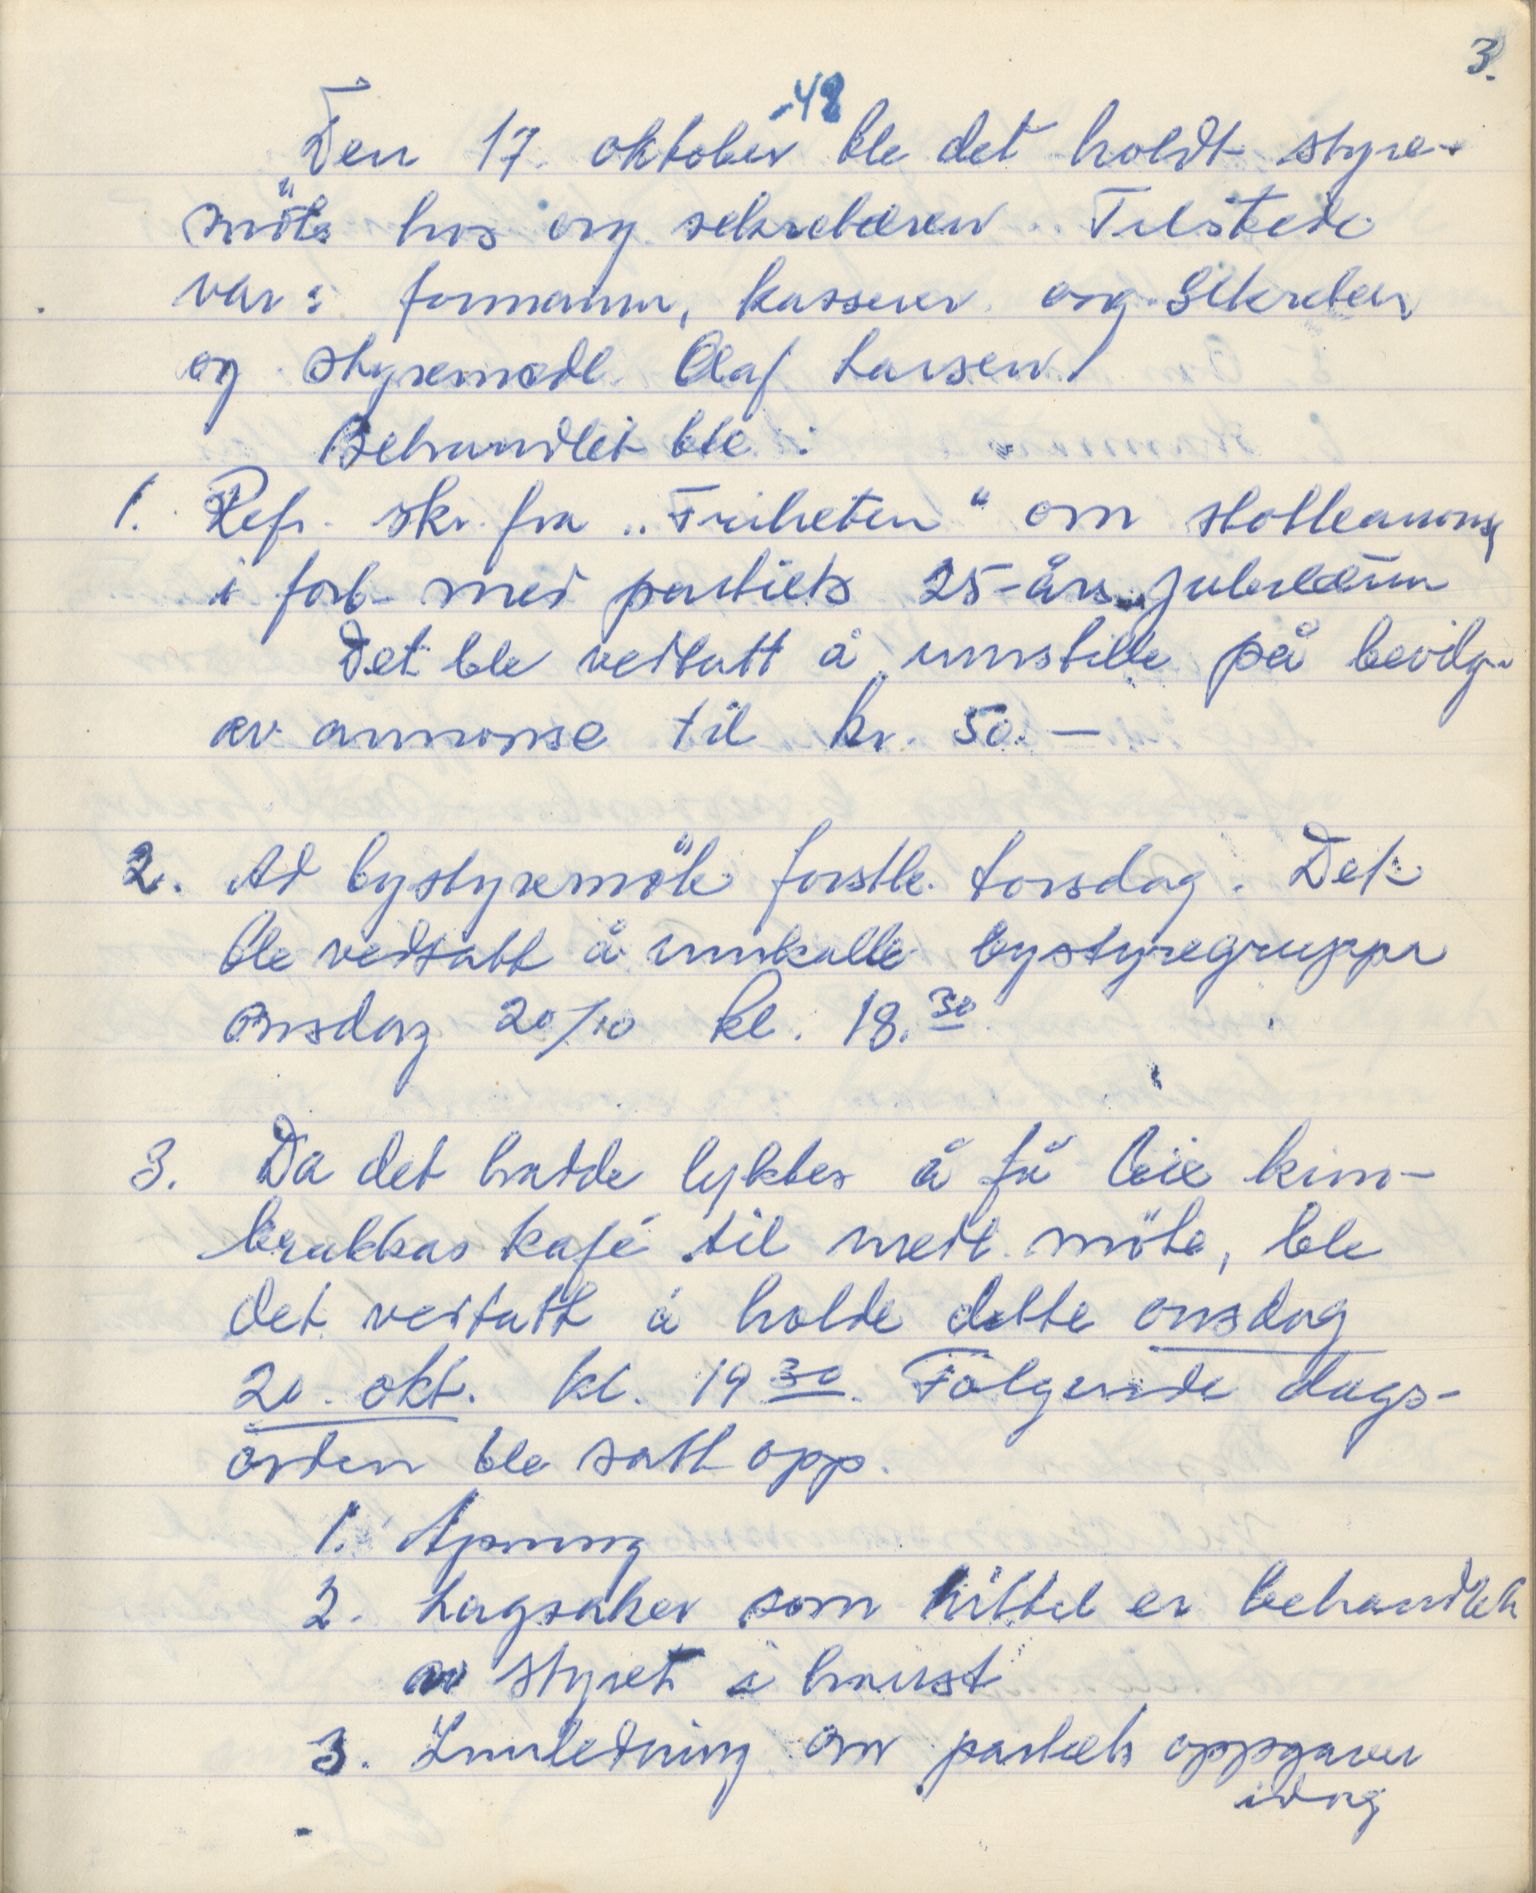 3.
-48
Den 17. oktober ble det holdt styre-
möte hos org sekretæren. Tilstede
var: formann, kasserer org. sekretær
og styremedl. Olaf Larsen.
Behandlet ble:
1. Ref. skr. fra "Friheten" om støtteannons
i forb. med partiets 25-års jubileum
Det ble vedtatt å innstille på bevilgn.
av annonse til kr. 50.-
2. Ad bystyremöte førstk. torsdag. Det
ble vedtatt å innkalle bystyregruppa
onsdag 20/10 kl. 18.30
3. Da det hadde lyktes å få leie kino-
brakkas kafé til medl. möte, ble
det vedtatt å holde dette onsdag
20. okt. kl. 19 30. Følgende dags-
orden ble satt opp.
1. Åpning
2. Lagsaker som hittil er behandlet
av styret i haust
3. Innledning om partiets oppgaver
idag